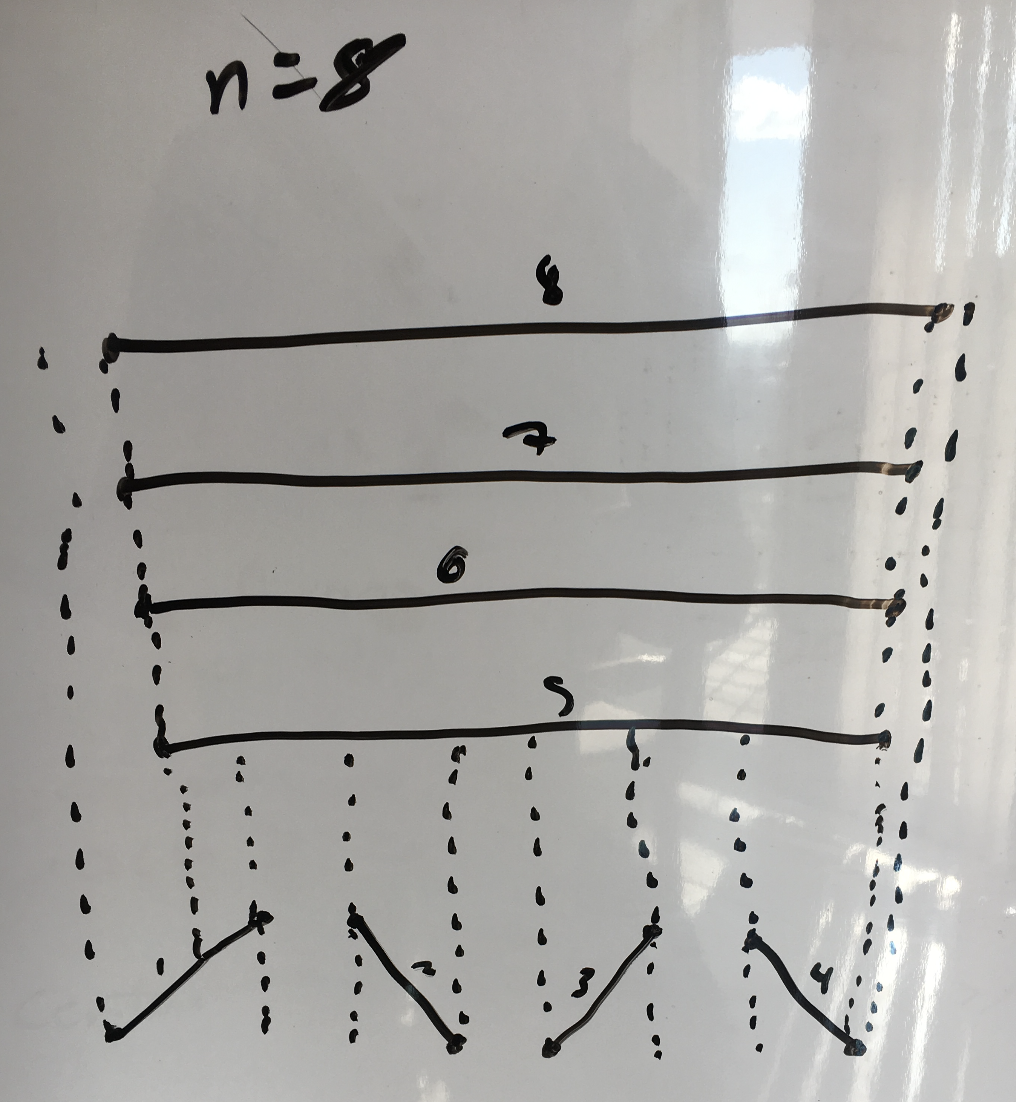 n=8
8
7
6
5
1
2
3
4